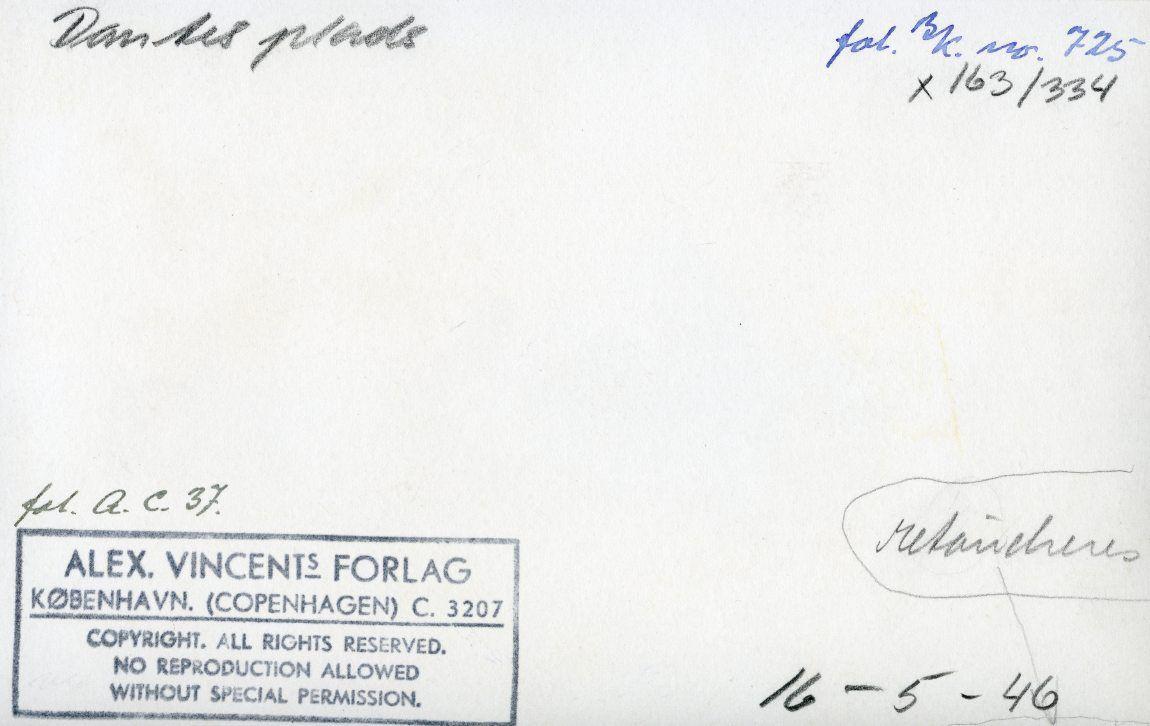 Dantes plads
fot. B/K. no. 725
x 163/334
fot. A. C. 37.
ALEX. VINCENTS FORLAG
KØBENHAVN. (COPENHAGEN) C. 3207
COPYRIGHT. ALL RIGHTS RESERVED.
NO REPRODUCTION ALLOWED
WITHOUT SPECIAL PERMISSION.
retoucheres
16-5-46